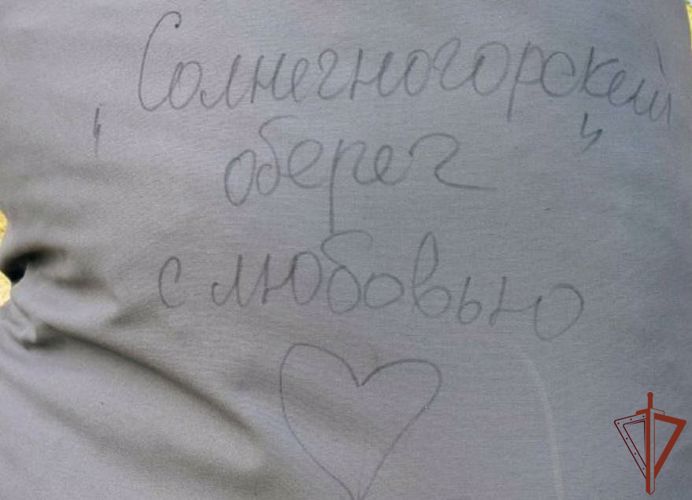 Солнечногорский
„ оберег "
с любовью